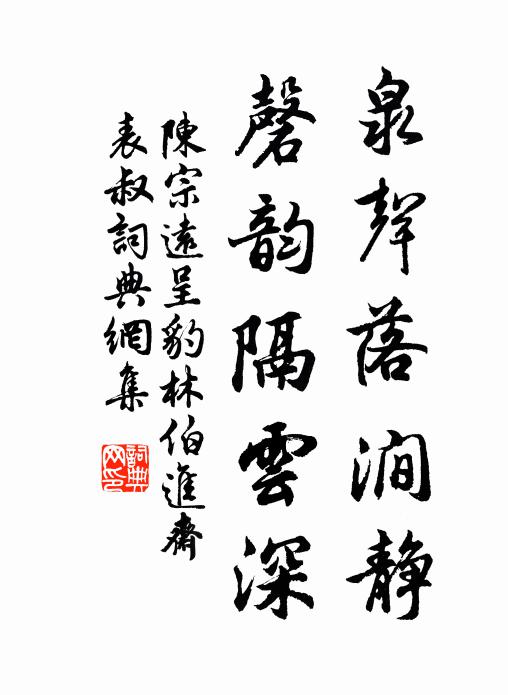 泉聲落澗静
磬韵隔雲深
陳宗遠呈豹林伯進齋
表叔詞典網集
詞典网印